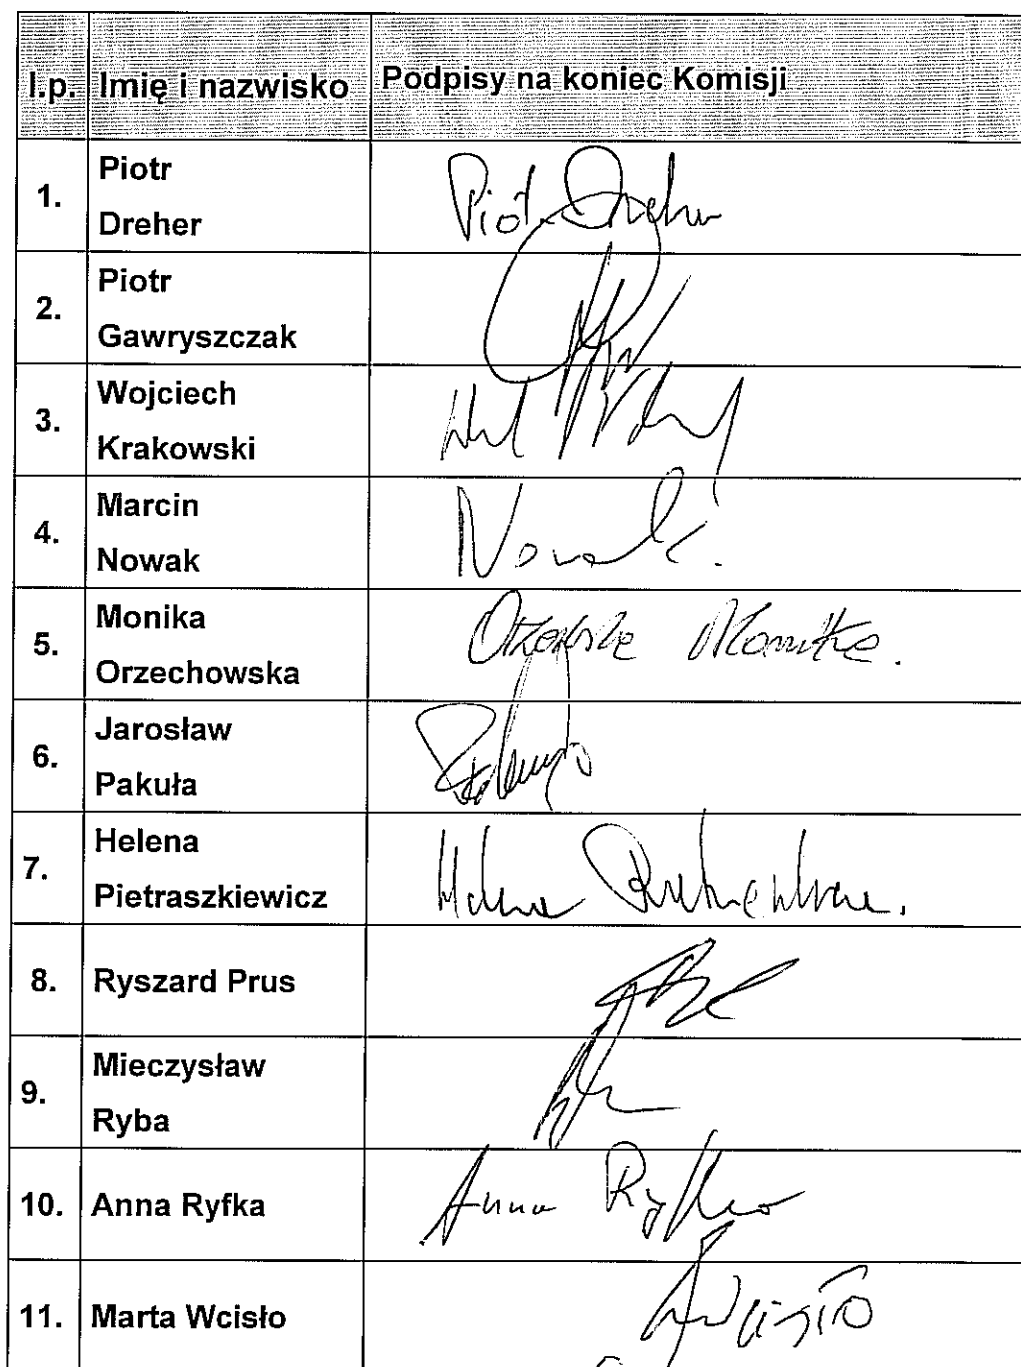 l.p. Imię i nazwisko Podpisy na koniec Komisji
1. Piotr Dreher Piotr Dreher
2. Piotr Gawryszczak
3. Wojciech Krakowski
4. Marcin Nowak Nowak
5. Monika Orzechowska Monika
6. Jarosław Pakuła
7. Helena Pietraszkiewicz Helena
8. Ryszard Prus
9. Mieczysław Ryba
10. Anna Ryfka Anna Ryfka
11. Marta Wcisło Wcisło